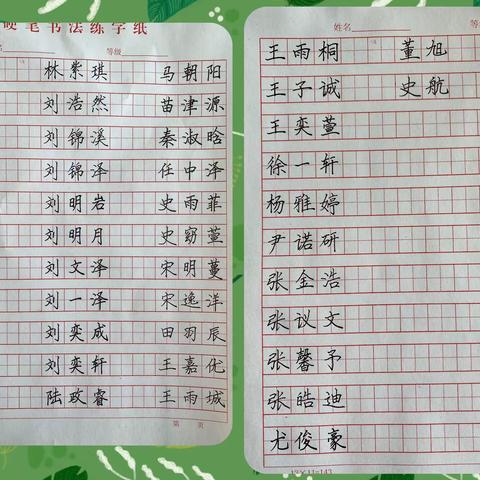 硬笔书法练字纸
等级
林紫琪 马朝阳
刘浩然 苗津源
刘锦溪 秦淑晗
刘锦泽 任中泽
刘明岩 史雨菲
刘明月 史窈萱
刘文泽 宋明蔓
刘一泽 宋逸洋
刘奕成 田羽辰
刘奕轩 王嘉优
陆政睿 王雨城
第 页
姓名 等级
王雨桐 董旭
王子诚 史航
王奕萱
徐一轩
杨雅婷
尹诺研
张金浩
张议文
张馨予
张皓迪
尤俊豪
13×11=143